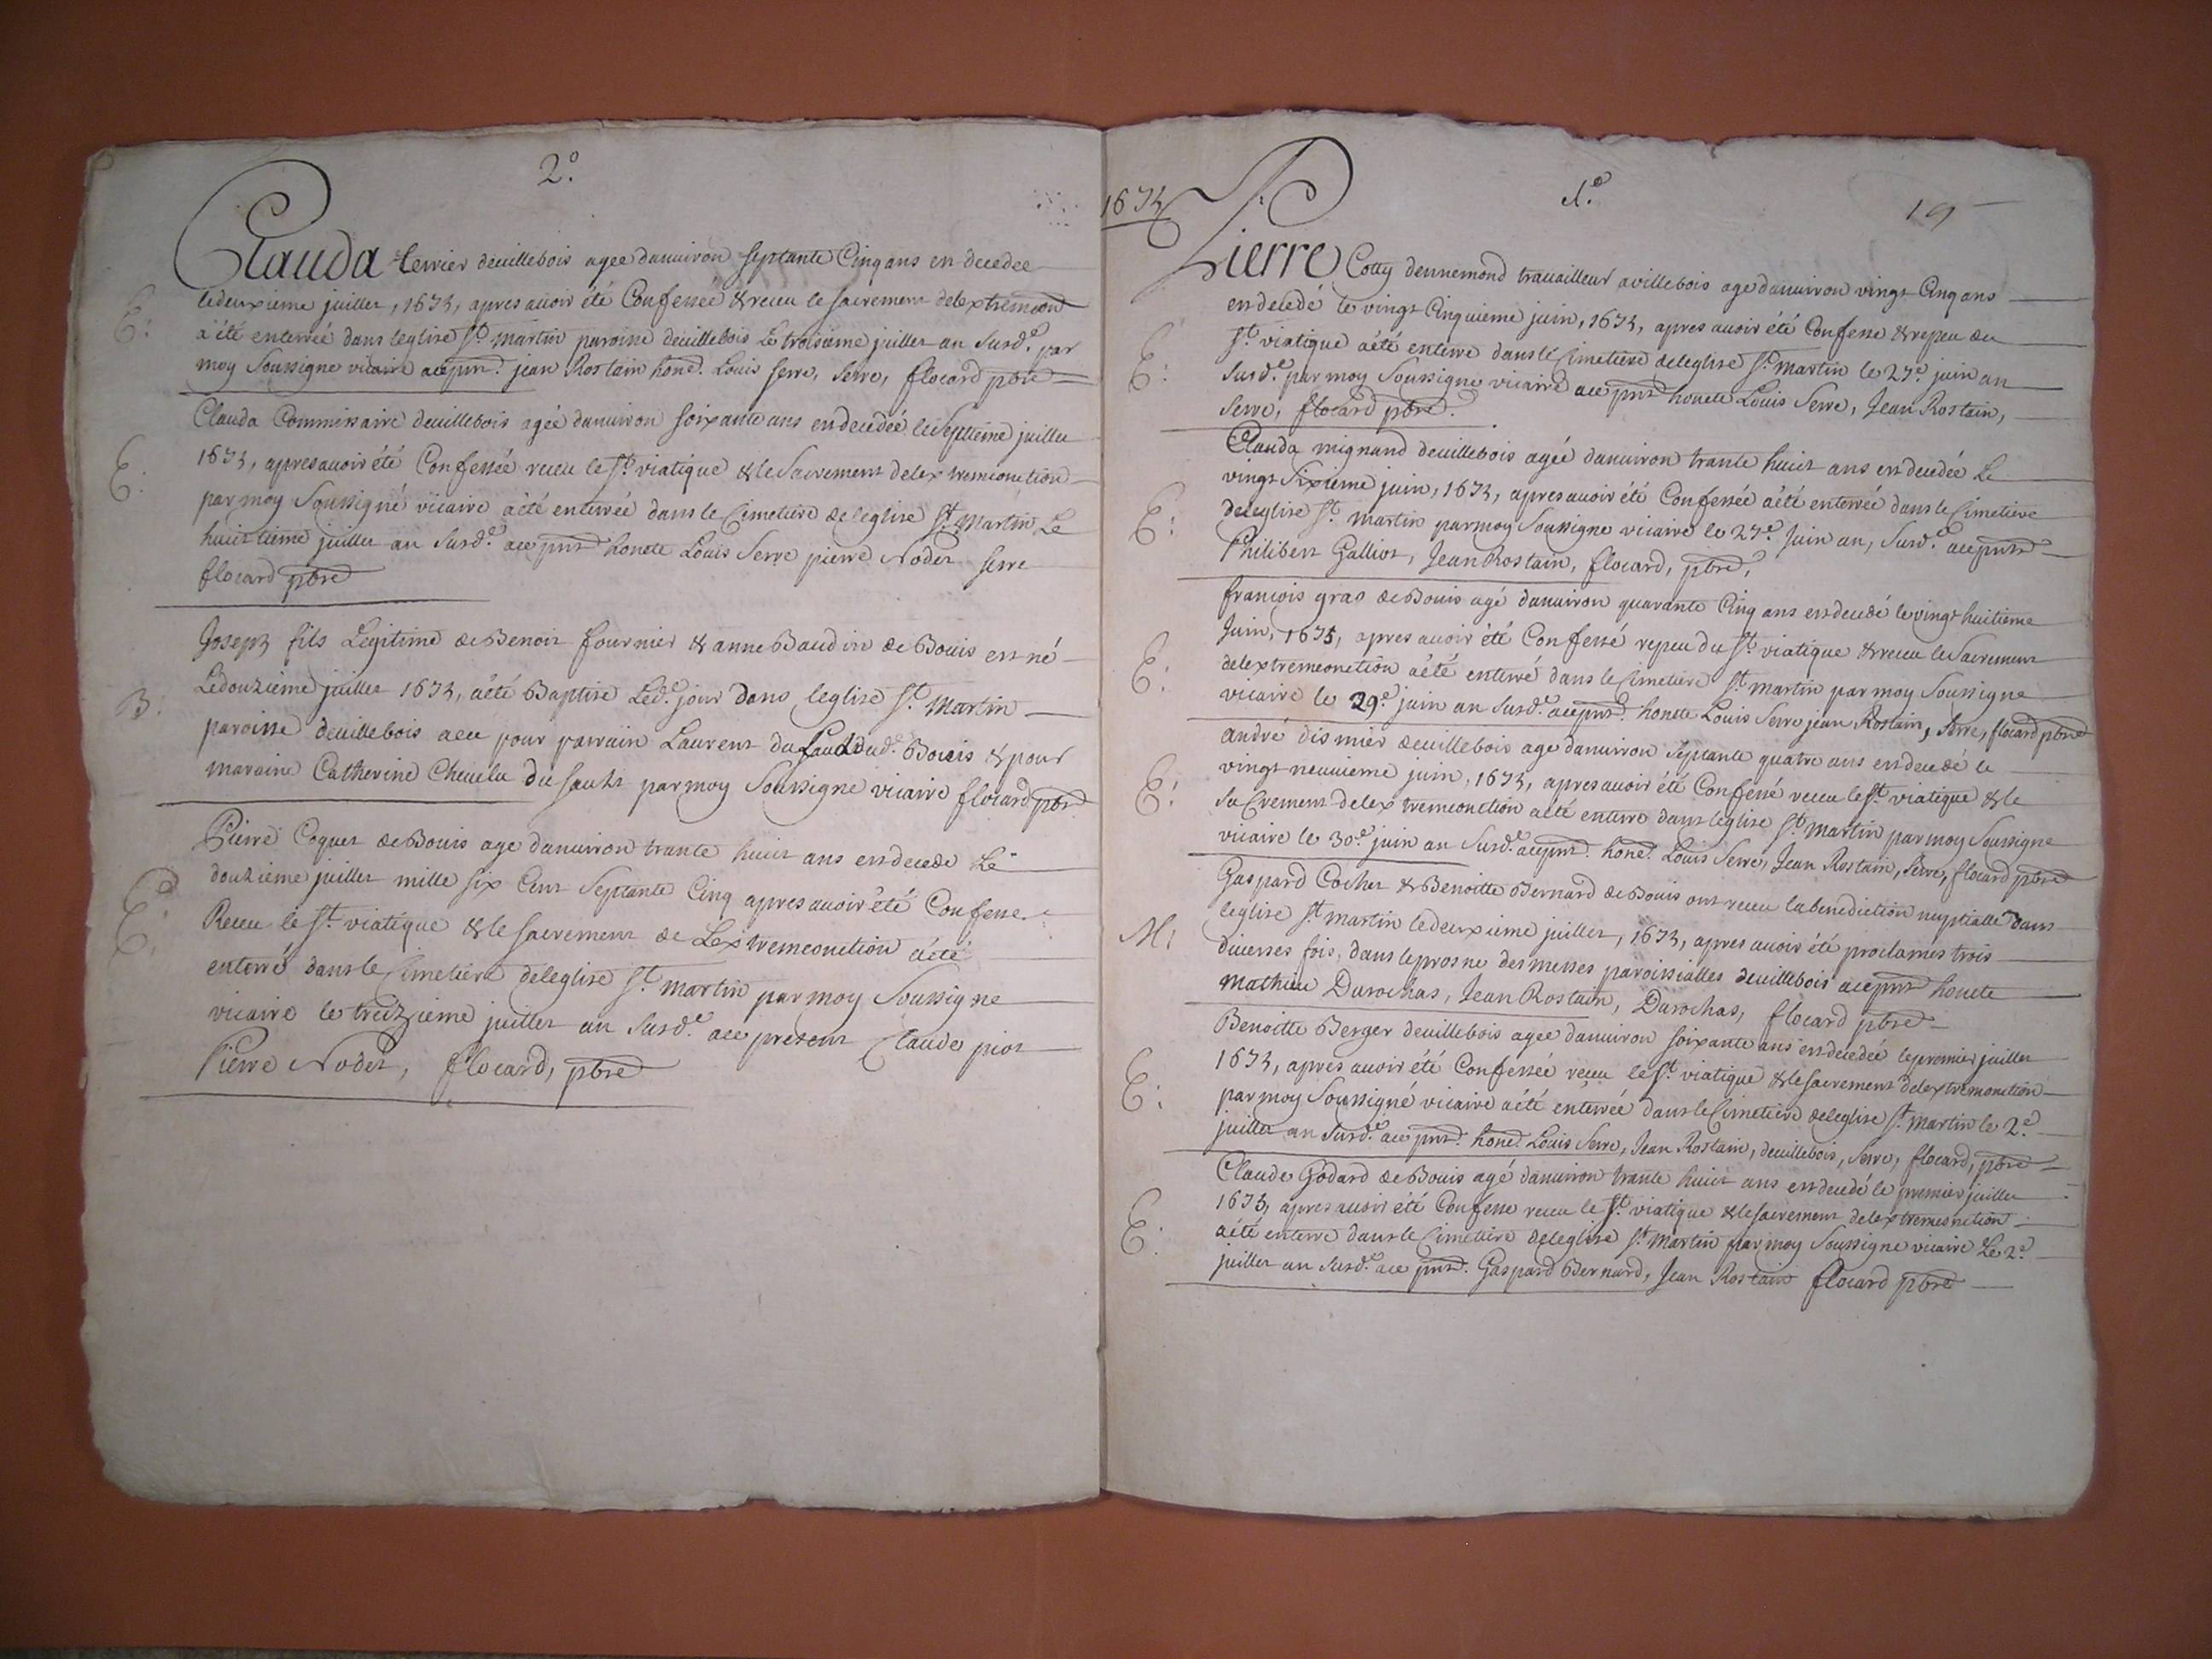 2.º
Clauda terrier deuillebois agee danuiron septante Cinq ans en decedee
ledeuxieme juillet, 1675, apres auoir été Confessée & receu le sacrement delextremoon
E: a été enterrée dans leglise St. martin paroisse deuillebois Le troisieme juillet an Susd.e par
moy Soussigne vicaire acepnt. jean Rostain hone. Louis serre, Serre, flocard pbre
Clauda Commissaire deuillebois agée danuiron soixante ans en decedée le Septieme juillet
E. 1675, apres auoir été Confessée receu le St. viatique & le Sacrement delextremeonction
par moy Soussigné vicaire aété enterrée dans le Cimetiere de leglise St. Martin Le
huictieme juillet an Susd.e ace pnt honete Louis Serre pierre Nodet serre
flocard pbre
Joseph fils Legitime de Benoit fournier & anne Baudin de Bouis est né
B: Ledouzieme juillet 1675, aété Baptise Led.e jour dans leglise St. Martin
paroisse deuillebois aeu pour parrain Laurent du Sault dud.e Bouis & pour
maraine Catherine Cheuelu du sault par moy Soussigne vicaire flocard pbre
Pierre Coquet de Bouis age danuiron trante huict ans en decede Le
douzieme juillet mille six Cent Septante Cinq apres auoir été Confesse
E. Receu le St. viatique & le sacrement de Lextremeonction aété
enterré dans le Cimetiere deleglise St. martin par moy Soussigne
vicaire le treizieme juillet an Susd.e ace present Claude piot
Pierre Nodet, flocard, pbre
1675
1.º
19
Pierre Cotty dennemond trauailleur a villebois age danuiron vingt Cinq ans
en decedé le vingt Cinquieme juin, 1675, apres auoir été Confesse & repeu du
E: St. viatique aété enterre dans le Cimetiere deleglise St. martin le 27.e juin an
Susd.e par moy Soussigne vicaire ace pnt honete Louis Serre, Jean Rostain,
Serre, flocard pbre.
Clauda mignand deuillebois agée danuiron trante huict ans en decedée Le
vingt Sixieme juin, 1675, apres auoir été Confessée aété enterrée dans le Cimetiere
E: deleglise St. martin par moy Soussigne vicaire le 27.e Juin an, Susd.e acepnts
Philibert Galliot, Jean Rostain, flocard, pbre,
francois gras de Bouis agé danuiron quarante Cinq ans en decedé le vingt huitieme
Juin, 1675, apres auoir été Confessé repeu du St. viatique & receu le Sacrement
E. delextremeonction aété enterré dans le Cimetiere St. martin par moy Soussigne
vicaire le 29.e juin an Susd.e acepnt. honete Louis Serre jean Rostain, Serre, flocard pbre
andré dismier deuillebois age danuiron Septante quatre ans en decedé le
E: vingt neuuieme juin, 1675, apres auoir été Confessé receu le St. viatique & le
Sacrement delextremeonction aété enterre dans leglise St. Martin par moy Soussigne
vicaire le 30.e juin an Susd.e acepnt. hone. Louis Serre, Jean Rostain, Serre, flocard pbre
Gaspard Cochet & Benoitte Bernard de Bouis ont receu la benediction nuptialle dans
M: leglise St. martin le deuxieme juillet, 1675, apres auoir été proclamés trois
diuerses fois, dans leprosne des messes paroissialles deuillebois acepnt honete
Mathieu Durochas, Jean Rostain, Durochas, flocard pbre
Benoitte Berger deuillebois agee danuiron soixante ans en decedée lepremier juillet
E: 1675, apres auoir été Confessée receu le St. viatique & le sacrement delextremonction
par moy Soussigné vicaire aété enterrée dans le Cimetiere deleglise St. Martin le 2.e
juillet an Susd.e ace pnt. hone. Louis Serre, Jean Rostain, deuillebois, Serre, flocard, pbre
Claude Godard de Bouis agé danuiron trante huict ans en decedé le premier juillet
E: 1675, apres auoir été Confesse receu le St. viatique & le sacrement delextremeonction
aété enterre dans le Cimetiere deleglise St. Martin par moy Soussigne vicaire Le 2.e
juillet an Susd.e ace pnt. Gaspard Bernard, Jean Rostain flocard pbre